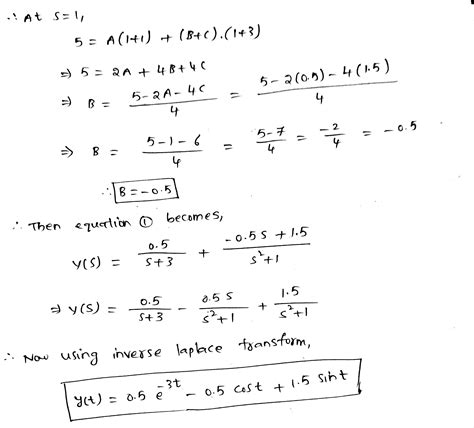 ∴ At s=1,
5 = A(1+1) + (B+C).(1+3)
⇒ 5 = 2A + 4B+4C
⇒ B = (5-2A-4C)/4 = (5-2(0.5)-4(1.5))/4
⇒ B = (5-1-6)/4 = (5-7)/4 = -2/4 = -0.5
∴ B=-0.5
∴ Then equation ① becomes,
y(s) = 0.5/(s+3) + (-0.5s+1.5)/(s²+1)
⇒ y(s) = 0.5/(s+3) - 0.5s/(s²+1) + 1.5/(s²+1)
∴ Now using inverse laplace transform,
y(t) = 0.5 e^(-3t) - 0.5 cost + 1.5 sint